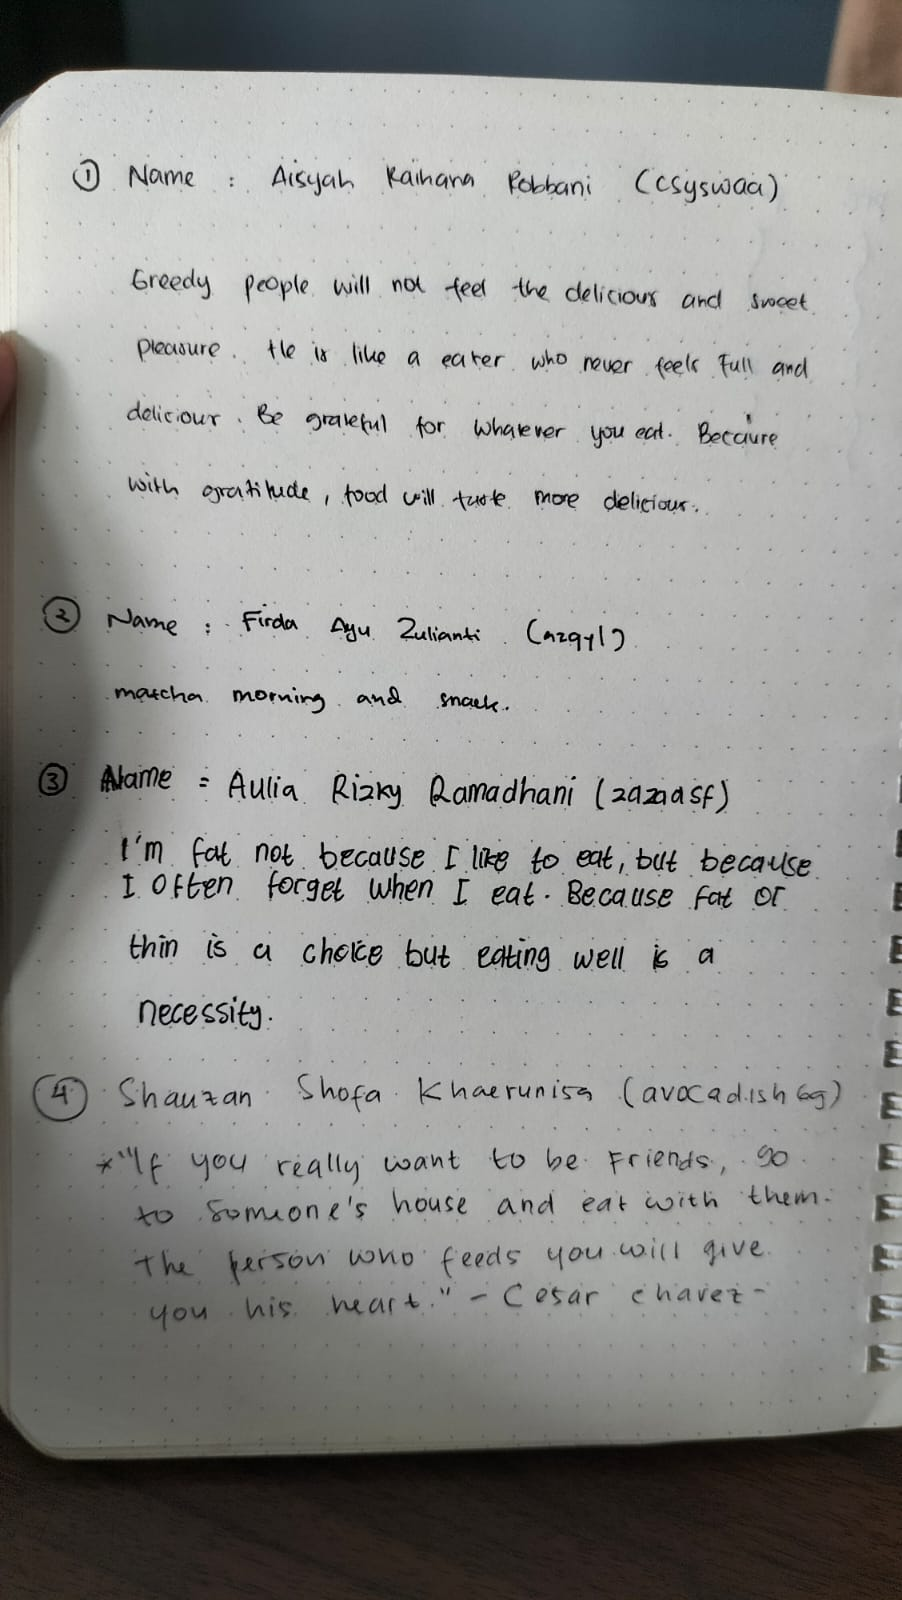 ① Name : Aisyah Raihana Robbani (csyswaa)
Greedy people will not feel the delicious and sweet
pleasure. He is like a eater who never feels full and
delicious. Be grateful for whatever you eat. Because
with gratitude, food will taste more delicious.
② Name : Firda Ayu Zulianti
matcha morning and snack.
③ Name = Aulia Rizky Ramadhani (zazaasf)
I'm fat not because I like to eat, but because
I often forget when I eat. Because fat or
thin is a choice but eating well is a
necessity.
④ Shauzan Shofa Khaerunisa (avocadish69)
*"If you really want to be friends, go
to someone's house and eat with them.
the person who feeds you will give
you his heart." - Cesar chavez -